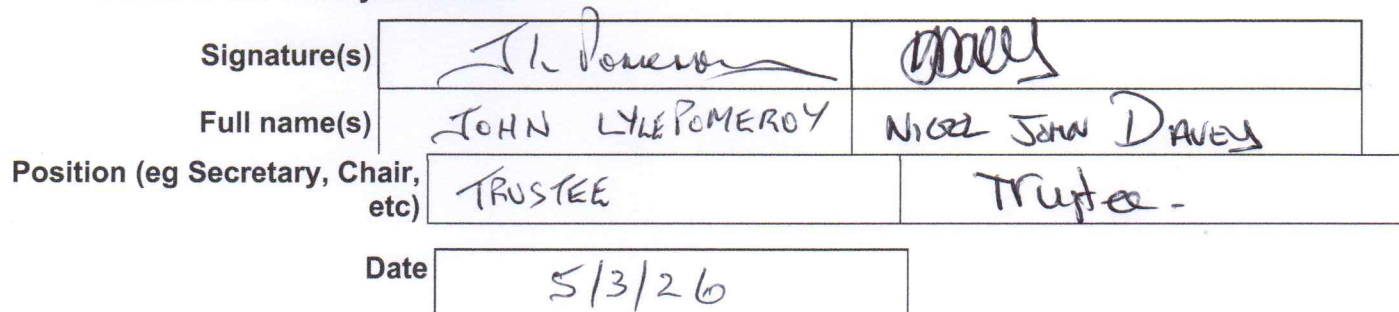 Signature(s) J L Pomeroy
Full name(s) JOHN LYLE POMEROY NIGEL JOHN DAVEY
Position (eg Secretary, Chair, etc) TRUSTEE Trustee -
Date 5/3/26